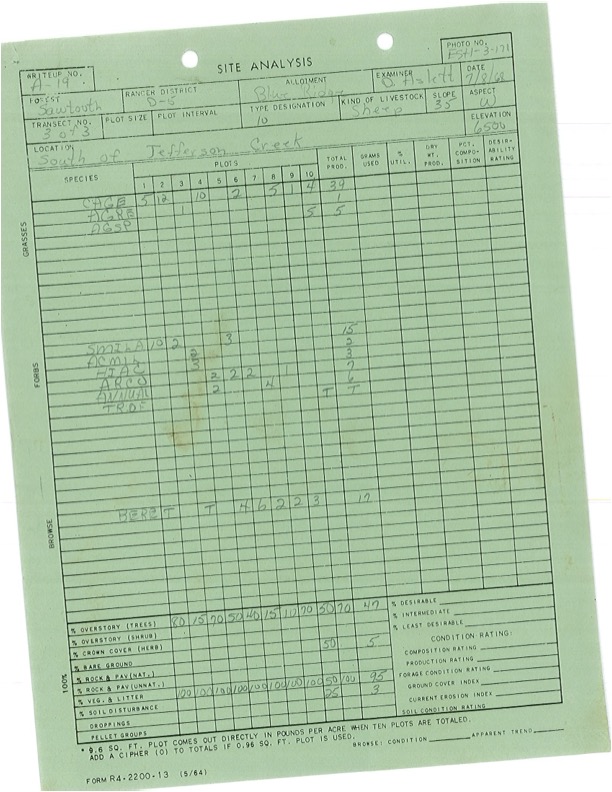 SITE ANALYSIS
PHOTO NO.
WRITEUP NO. A-19
ALLOTMENT Blue Ridge
EXAMINER D. Haslett
DATE 7/8/68
FOREST Sawtooth
RANGER DISTRICT D-5
TRANSECT NO. 3 of 3
PLOT SIZE
PLOT INTERVAL
TYPE DESIGNATION 10
KIND OF LIVESTOCK Sheep
SLOPE 35
ASPECT W
ELEVATION 6500
LOCATION South of Jefferson Creek
SPECIES
PLOTS
1 2 3 4 5 6 7 8 9 10
TOTAL PROD.
GRAMS USED
% UTIL.
DRY WT. PROD.
PCT. COMPO- SITION
DESIR- ABILITY RATING
GRASSES
CAGE 5 12 10 2 5 1 4 39
AGRE 1 1
AGSP 5 5
FORBS
SMILA 10 2 3 15
ACMIL 2 2
HIAC 3 3
ARCO 2 2 2 1 7
ANNUAL 2 4 6
TRDF T T
BROWSE
BERE T T 4 6 2 2 3 17
100%
% OVERSTORY (TREES) 80 15 70 50 40 15 10 70 50 70 47
% OVERSTORY (SHRUB)
% CROWN COVER (HERB)
% BARE GROUND 50 5
% ROCK & PAV(NAT.)
% ROCK & PAV(UNNAT.)
% VEG. & LITTER 100 100 100 100 100 100 100 100 50 100 95
% SOIL DISTURBANCE 25 3
DROPPINGS
PELLET GROUPS
% DESIRABLE
% INTERMEDIATE
% LEAST DESIRABLE
CONDITION RATING:
COMPOSITION RATING
PRODUCTION RATING
FORAGE CONDITION RATING
GROUND COVER INDEX
CURRENT EROSION INDEX
SOIL CONDITION RATING
* 9.6 SQ. FT. PLOT COMES OUT DIRECTLY IN POUNDS PER ACRE WHEN TEN PLOTS ARE TOTALED.
ADD A CIPHER (0) TO TOTALS IF 0.96 SQ. FT. PLOT IS USED.
BROWSE: CONDITION
APPARENT TREND
FORM R4-2200-13 (5/64)